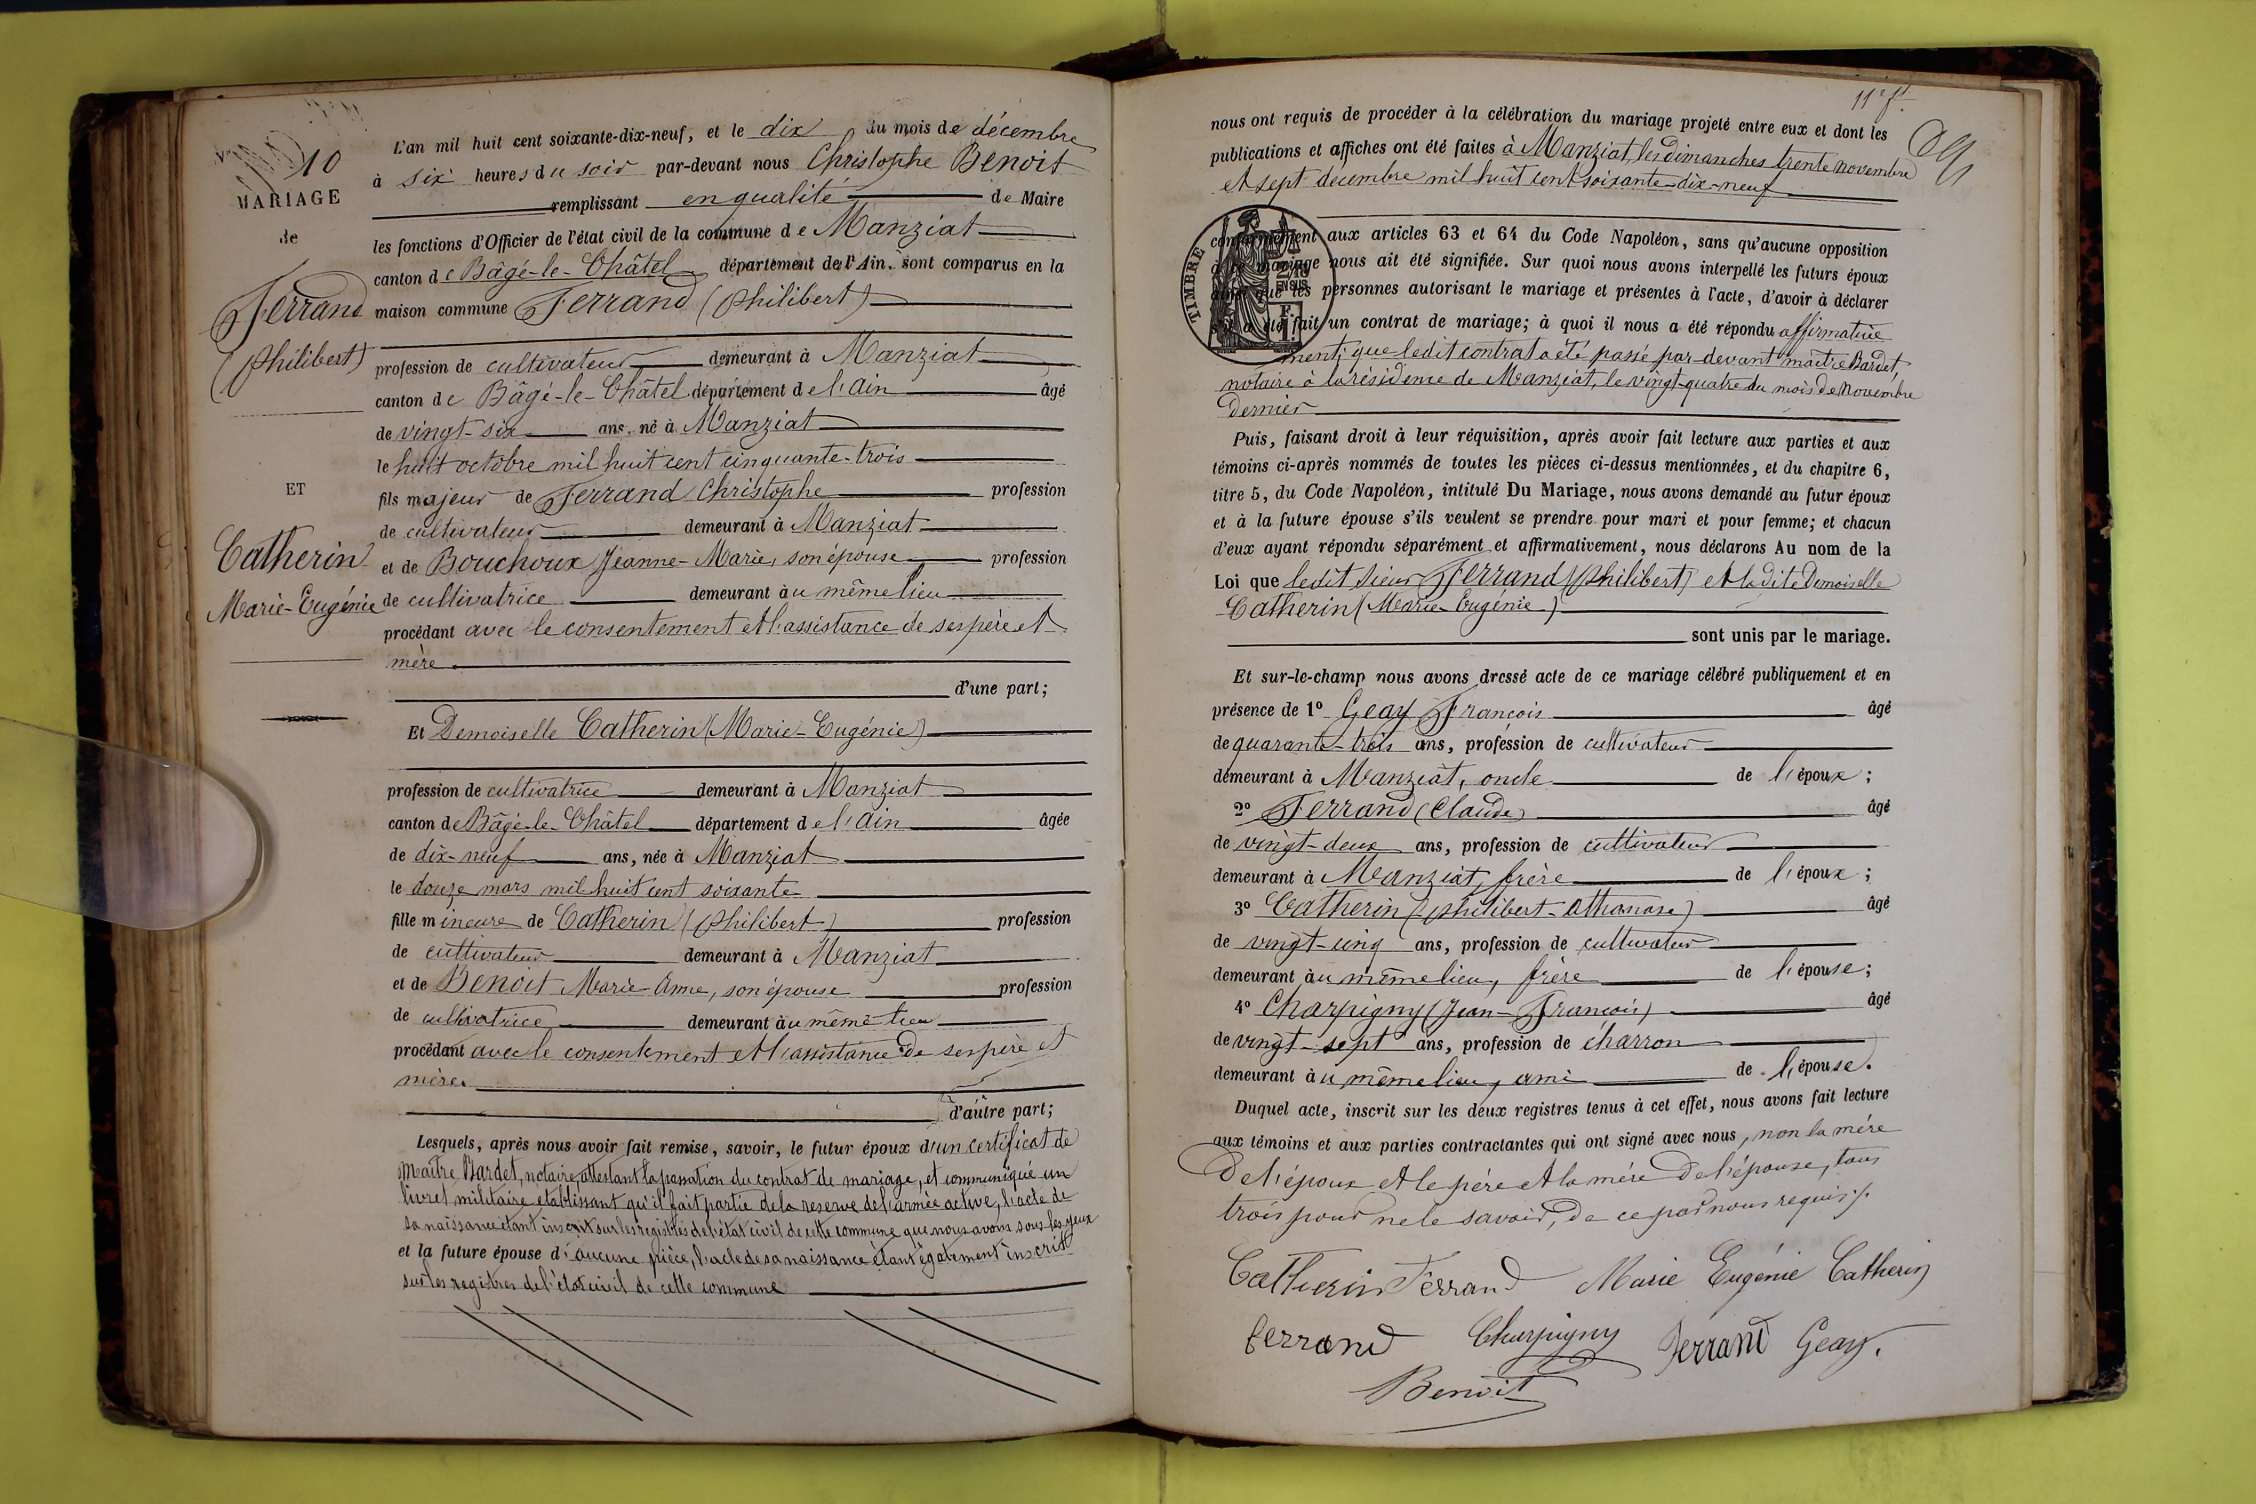 10
MARIAGE
de
Ferrand
(Philibert)
ET
Catherin
Marie-Eugénie
L'an mil huit cent soixante-dix-neuf, et le dix du mois de décembre
à six heures du soir par-devant nous Christophe Benoit
remplissant en qualité de Maire
les fonctions d'Officier de l'état civil de la commune de Manziat
canton de Bâgé-le-Châtel département de l'Ain. sont comparus en la
maison commune Ferrand (Philibert)
profession de cultivateur demeurant à Manziat
canton de Bâgé-le-Châtel département de l'Ain âgé
de vingt-six ans, né à Manziat
le huit octobre mil huit cent cinquante-trois
fils majeur de Ferrand Christophe profession
de cultivateur demeurant à Manziat
et de Bouchoux Jeanne-Marie, son épouse profession
de cultivatrice demeurant au même lieu
procédant avec le consentement et l'assistance de ses père et
mère
d'une part;
Et Demoiselle Catherin (Marie-Eugénie)
profession de cultivatrice demeurant à Manziat
canton de Bâgé-le-Châtel département de l'Ain âgée
de dix-neuf ans, née à Manziat
le douze mars mil huit cent soixante
fille mineure de Catherin (Philibert) profession
de cultivateur demeurant à Manziat
et de Benoit Marie-Anne, son épouse profession
de cultivatrice demeurant au même lieu
procédant avec le consentement et l'assistance de ses père et
mère.
d'autre part;
Lesquels, après nous avoir fait remise, savoir, le futur époux d'un certificat de
Maître Bardet, notaire, attestant la passation du contrat de mariage, et communiqué un
livret militaire établissant qu'il fait partie de la reserve de l'armée active, l'acte de
sa naissance étant inscrit sur les registres de l'état civil de cette commune que nous avons sous les yeux
et la future épouse d'aucune pièce, l'acte de sa naissance étant également inscrit
sur les registres de l'état civil de cette commune
11e f.
nous ont requis de procéder à la célébration du mariage projeté entre eux et dont les
publications et affiches ont été faites à Manziat, les dimanches trente novembre
et sept décembre mil huit cent soixante-dix-neuf
conformément aux articles 63 et 64 du Code Napoléon, sans qu'aucune opposition
à ce mariage nous ait été signifiée. Sur quoi nous avons interpellé les futurs époux
ainsi que les personnes autorisant le mariage et présentes à l'acte, d'avoir à déclarer
s'il a été fait un contrat de mariage; à quoi il nous a été répondu affirmative
ment, que ledit contrat a été passé par-devant maître Bardet,
notaire à la résidence de Manziat, le vingt-quatre du mois de novembre
dernier
TIMBRE
2/10
EN SUS
Puis, faisant droit à leur réquisition, après avoir fait lecture aux parties et aux
témoins ci-après nommés de toutes les pièces ci-dessus mentionnées, et du chapitre 6,
titre 5, du Code Napoléon, intitulé Du Mariage, nous avons demandé au futur époux
et à la future épouse s'ils veulent se prendre pour mari et pour femme; et chacun
d'eux ayant répondu séparément et affirmativement, nous déclarons Au nom de la
Loi que ledit sieur Ferrand (Philibert) et ladite Demoiselle
Catherin (Marie-Eugénie)
sont unis par le mariage.
Et sur-le-champ nous avons dressé acte de ce mariage célébré publiquement et en
présence de 1º Geay François âgé
de quarante-trois ans, profession de cultivateur
demeurant à Manziat, oncle de l'époux;
2º Ferrand (Claude) âgé
de vingt-deux ans, profession de cultivateur
demeurant à Manziat, frère de l'époux;
3º Catherin (Philibert-Athanase) âgé
de vingt-cinq ans, profession de cultivateur
demeurant au même lieu, frère de l'épouse;
4º Charpigny (Jean-François) âgé
de vingt-sept ans, profession de charron
demeurant au même lieu, ami de l'épouse.
Duquel acte, inscrit sur les deux registres tenus à cet effet, nous avons fait lecture
aux témoins et aux parties contractantes qui ont signé avec nous, non la mère
de l'époux et le père et la mère de l'épouse, tous
trois pour ne le savoir, de ce par nous requis.
Catherin Ferrand Marie Eugénie Catherin
Ferrand Charpigny Ferrand Geay.
Benoit